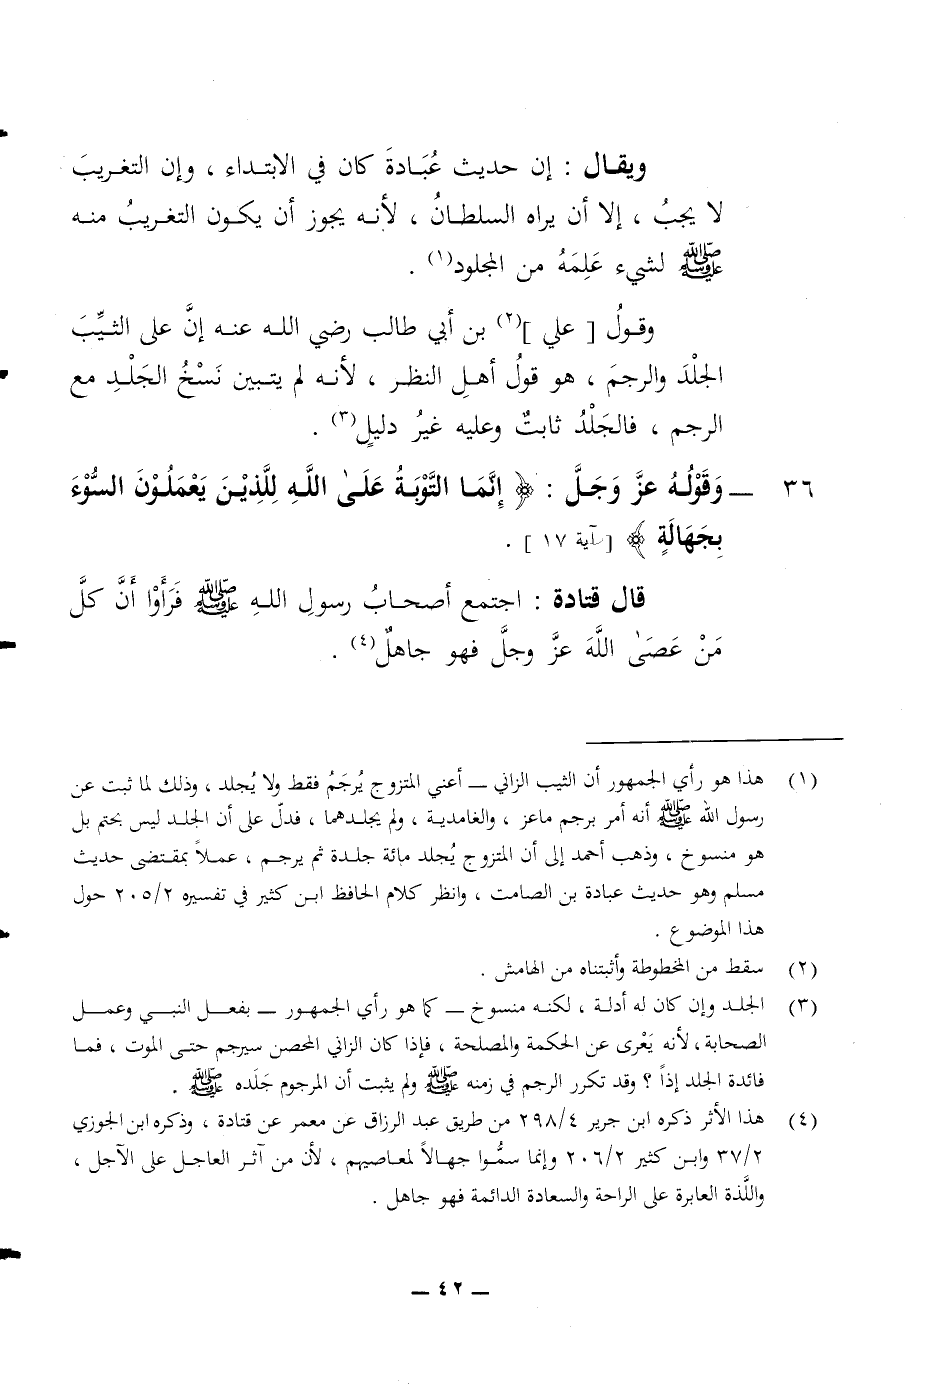 ويقال : إن حديث عُبَادةَ كان في الابتداء ، وإن التغريبَ
لا يجبُ ، إلا أن يراه السلطانُ ، لأنه يجوز أن يكون التغريبُ منه
ﷺ لشيء عَلِمَهُ من المجلود(١) .
وقولُ [ علي ](٢) بن أبي طالب رضي الله عنه إنَّ على الثيِّبَ
الجلْدَ والرجمَ ، هو قولُ أهلِ النظر ، لأنه لم يتبين نَسْخُ الجَلْدِ مع
الرجم ، فالجَلْدُ ثابتٌ وعليه غيرُ دليلٍ(٣) .
٣٦ ــ وَقَوْلُهُ عزَّ وَجَلَّ : ﴿ إِنَّمَا التَّوْبَةُ عَلَىٰ اللَّهِ لِلَّذِيْنَ يَعْمَلُوْنَ السُّوْءَ
بِجَهَالَةٍ ﴾ [ آية ١٧ ] .
قال قتادة : اجتمع أصحابُ رسولِ اللهِ ﷺ فَرَأَوْا أَنَّ كلَّ
مَنْ عَصَىٰ اللَّهَ عزَّ وجلَّ فهو جاهلٌ(٤) .
(١) هذا هو رأي الجمهور أن الثيب الزاني ــ أعني المتزوج يُرجَمُ فقط ولا يُجلد ، وذلك لما ثبت عن
رسول الله ﷺ أنه أمر برجم ماعز ، والغامدية ، ولم يجلدهما ، فدلّ على أن الجلد ليس بحتم بل
هو منسوخ ، وذهب أحمد إلى أن المتزوج يُجلد مائة جلدة ثم يرجم ، عملاً بمقتضى حديث
مسلم وهو حديث عبادة بن الصامت ، وانظر كلام الحافظ ابن كثير في تفسيره ٢٠٥/٢ حول
هذا الموضوع .
(٢) سقط من المخطوطة وأثبتناه من الهامش .
(٣) الجلد وإن كان له أدلة ، لكنه منسوخ ــ كما هو رأي الجمهور ــ بفعل النبي وعمل
الصحابة ، لأنه يَعْرى عن الحكمة والمصلحة ، فإذا كان الزاني المحصن سيرجم حتى الموت ، فما
فائدة الجلد إذاً ؟ وقد تكرر الرجم في زمنه ﷺ ولم يثبت أن المرجوم جَلَده ﷺ .
(٤) هذا الأثر ذكره ابن جرير ٢٩٨/٤ من طريق عبد الرزاق عن معمر عن قتادة ، وذكره ابن الجوزي
٣٧/٢ وابن كثير ٢٠٦/٢ وإنما سمُّوا جهالاً لمعاصيهم ، لأن من آثر العاجل على الآجل ،
واللَّذة العابرة على الراحة والسعادة الدائمة فهو جاهل .
ــ ٤٢ ــ